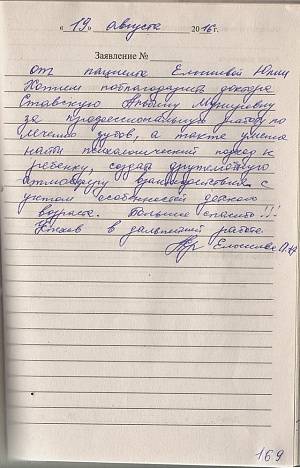 «19» августа 2016г.
Заявление №
от пациента Юлии
Хотим поблагодарить доктора
Ставскую Альбину Мунировну
за профессиональную работу по
лечению зубов, а также умение
найти психологический подход к
ребенку, создать дружескую
атмосферу взаимодействия с
учетом особенностей детского
возраста. Большое спасибо!!!
Успехов в дальнейшей работе.
169